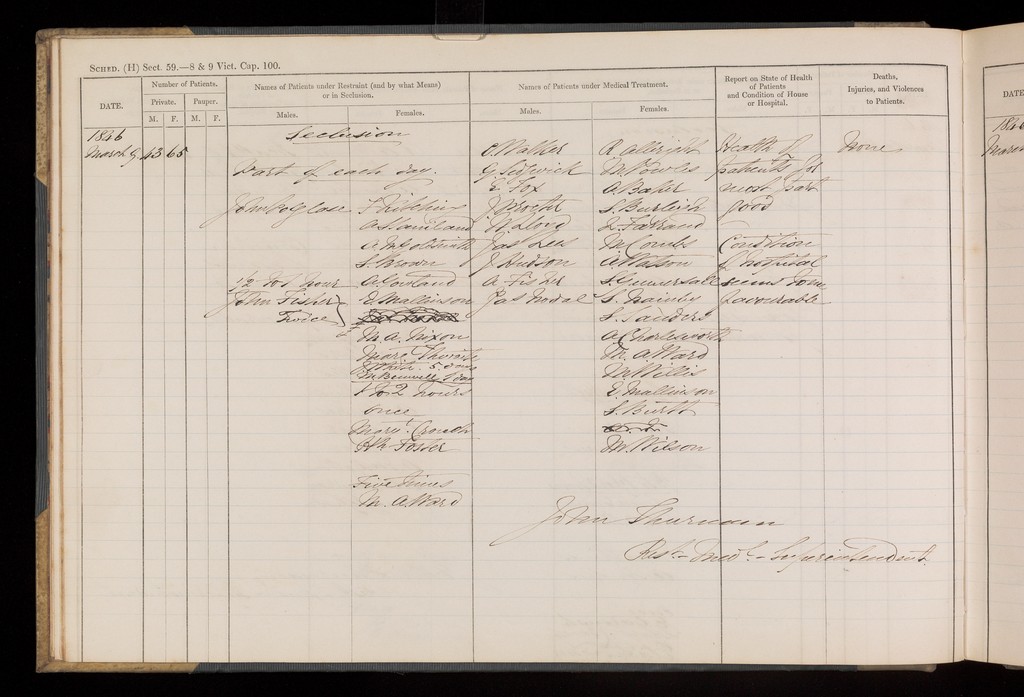 SCHED. (H) Sect. 59.—8 & 9 Vict. Cap. 100.
DATE.
Number of Patients.
Private. Pauper.
M. F. M. F.
Names of Patients under Restraint (and by what Means)
or in Seclusion.
Males. Females.
Names of Patients under Medical Treatment.
Males. Females.
Report on State of Health
of Patients
and Condition of House
or Hospital.
Deaths,
Injuries, and Violences
to Patients.
1846
March 9. 43 65
Seclusion
Part of each day.
John
½ to 1 hour
John Fisher
Twice
A. Gowland
S. Brown
E. Mallinson
M. A. Nixon
J. White 5
1 to 2 hours
once
Margt. Crouch
Foster
Five times
M. A. Ward
O. Walker
G. Sidgwick
E. Fox
J. Procter
W. Lloyd
Jas Lees
J. Hudson
A. Fisher
Jas
R. Allright
M. Fowles
A. Baker
S. Burleigh
M. Combs
A. Watson
S.
S. Sanders
A. Charlesworth
M. A. Ward
M. Willis
E. Mallinson
S. Burtt
M. Wilson
Health of
patients for
most part
good
Condition
of hospital
seems to me
favourable
None
John Thurnam
Rest. Medl. Superintendent.
DATE
1846
March